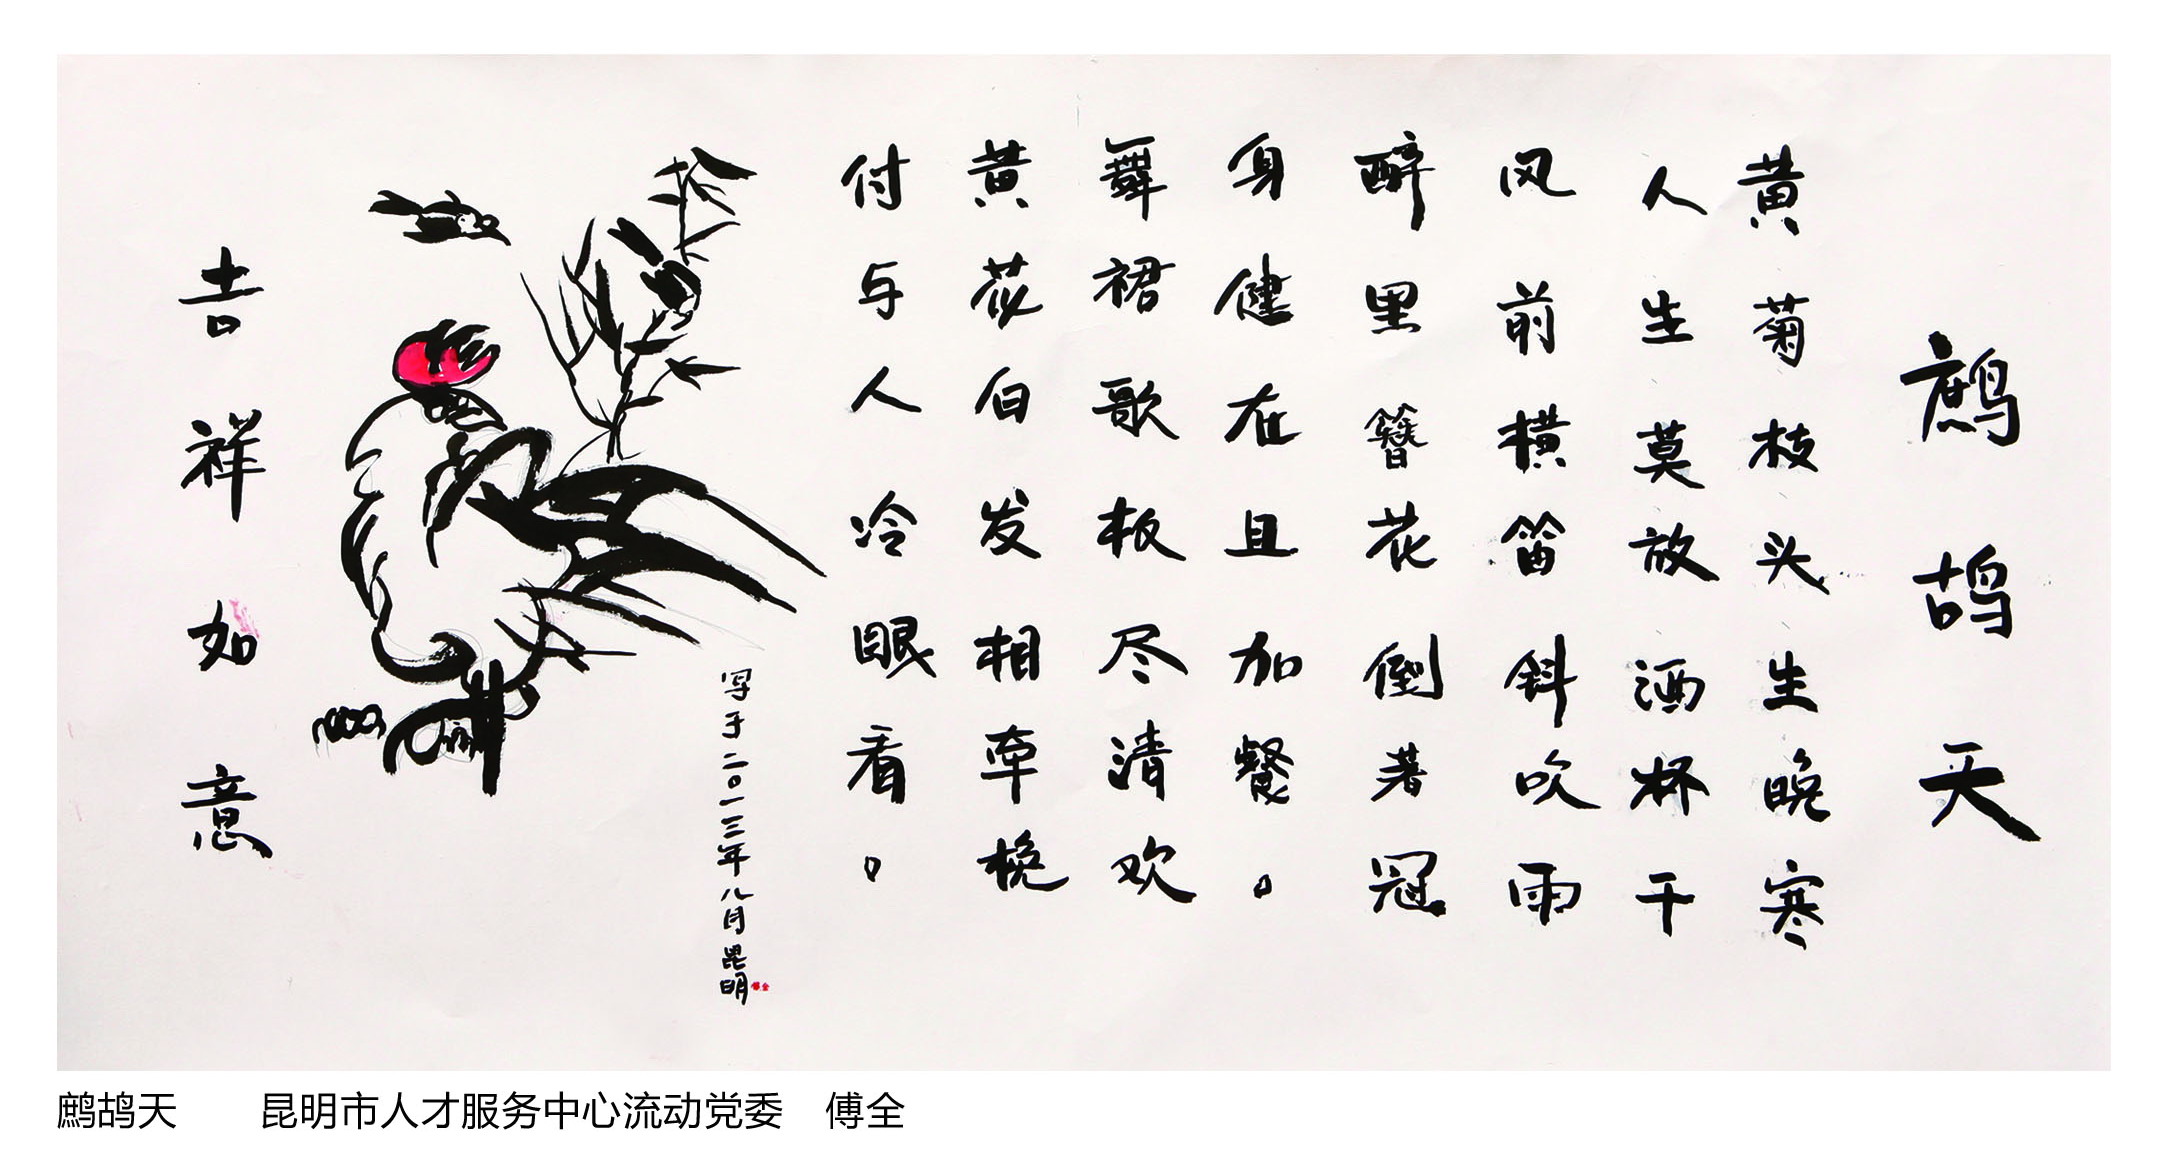 鹧鸪天
黄菊枝头生晚寒
人生莫放酒杯干
风前横笛斜吹雨
醉里簪花倒著冠
身健在且加餐。
舞裙歌板尽清欢
黄花白发相牵挽
付与人冷眼看。
写于二〇一三年八月昆明
傅全
吉祥如意
鹧鸪天 昆明市人才服务中心流动党委 傅全